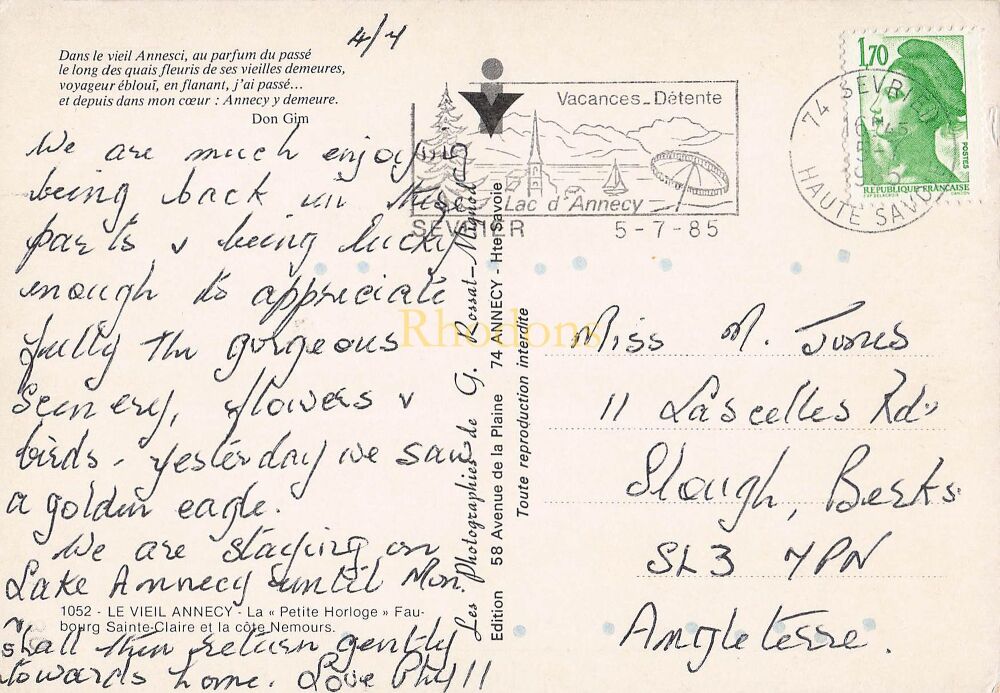 4/7
Dans le vieil Annesci, au parfum du passé
le long des quais fleuris de ses vieilles demeures,
voyageur éblouï, en flanant, j'ai passé...
et depuis dans mon cœur : Annecy y demeure.
Don Gim
We are much enjoying
being back in these
parts & being lucky
enough to appreciate
fully the gorgeous
scenery, flowers &
birds. Yesterday we saw
a golden eagle.
We are staying on
Lake Annecy until Mon.
1052 - LE VIEIL ANNECY - La « Petite Horloge » Fau-
bourg Sainte-Claire et la côte Nemours.
& shall then return gently
towards home. Love Phyll
Les Photographies de G. Rossat-Mignod
Edition 58 Avenue de la Plaine 74 ANNECY - Hte Savoie
Toute reproduction interdite
Vacances_Détente
Lac d'Annecy
SEVRIER 5-7-85
74 SEVRIER
HAUTE SAVOIE
1,70
POSTES
REPUBLIQUE FRANÇAISE
Rhodons
Miss M. Jones
11 Lascelles Rd.
Slough, Berks.
SL3 7PN
Angleterre.